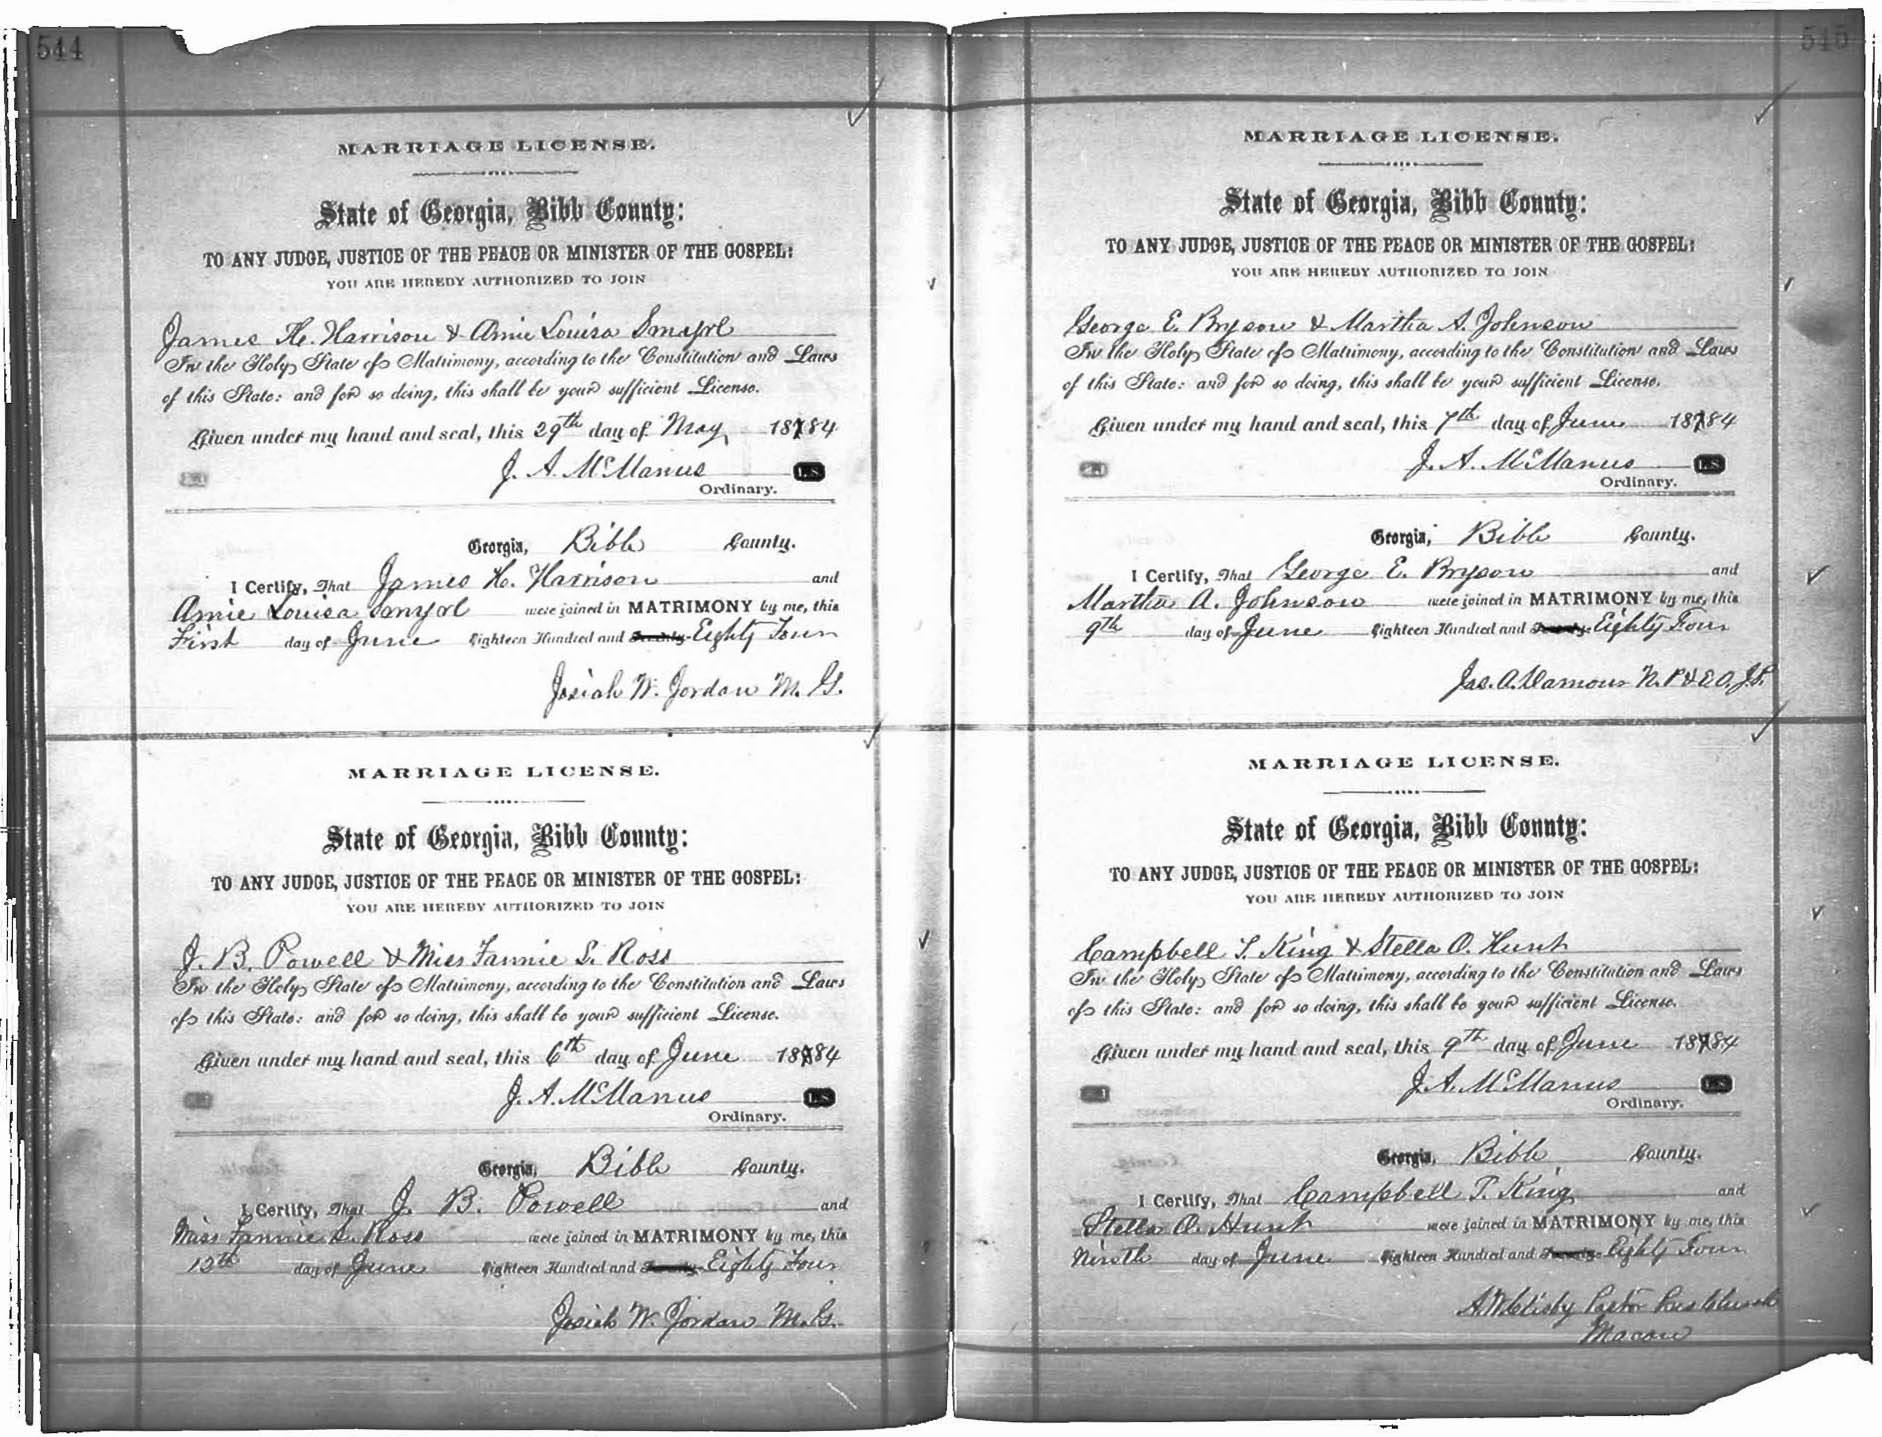 544
MARRIAGE LICENSE.
State of Georgia, Bibb County:
TO ANY JUDGE, JUSTICE OF THE PEACE OR MINISTER OF THE GOSPEL:
YOU ARE HEREBY AUTHORIZED TO JOIN
James H. Harrison & Amie Louisa Smayrl
In the Holy State of Matrimony, according to the Constitution and Laws
of this State: and for so doing, this shall be your sufficient License.
Given under my hand and seal, this 29th day of May 1884
J. A. McManus L.S.
Ordinary.
Georgia, Bibb County.
I Certify, That James H. Harrison and
Amie Louisa were joined in MATRIMONY by me, this
First day of June Eighteen Hundred and Eighty Four
Josiah W. Jordan M. G.
MARRIAGE LICENSE.
State of Georgia, Bibb County:
TO ANY JUDGE, JUSTICE OF THE PEACE OR MINISTER OF THE GOSPEL:
YOU ARE HEREBY AUTHORIZED TO JOIN
J. B. Powell & Miss Fannie S. Ross
In the Holy State of Matrimony, according to the Constitution and Laws
of this State: and for so doing, this shall be your sufficient License.
Given under my hand and seal, this 6th day of June 1884
J. A. McManus L.S.
Ordinary.
Georgia, Bibb County.
I Certify, That J. B. Powell and
Miss Fannie S. Ross were joined in MATRIMONY by me, this
day of June Eighteen Hundred and Eighty Four
Josiah W. Jordan M. G.
545
MARRIAGE LICENSE.
State of Georgia, Bibb County:
TO ANY JUDGE, JUSTICE OF THE PEACE OR MINISTER OF THE GOSPEL:
YOU ARE HEREBY AUTHORIZED TO JOIN
George E. Bryson & Martha A. Johnson
In the Holy State of Matrimony, according to the Constitution and Laws
of this State: and for so doing, this shall be your sufficient License.
Given under my hand and seal, this 7th day of June 1884
J. A. McManus L.S.
Ordinary.
Georgia, Bibb County.
I Certify, That George E. Bryson and
Martha A. Johnson were joined in MATRIMONY by me, this
9th day of June Eighteen Hundred and Eighty Four
Jas. A. N. P. & E. O. J. P.
MARRIAGE LICENSE.
State of Georgia, Bibb County:
TO ANY JUDGE, JUSTICE OF THE PEACE OR MINISTER OF THE GOSPEL:
YOU ARE HEREBY AUTHORIZED TO JOIN
Campbell T. King & Stella O. Hunt
In the Holy State of Matrimony, according to the Constitution and Laws
of this State: and for so doing, this shall be your sufficient License.
Given under my hand and seal, this 9th day of June 1884
J. A. McManus L.S.
Ordinary.
Georgia, Bibb County.
I Certify, That Campbell T. King and
Stella O. Hunt were joined in MATRIMONY by me, this
Ninth day of June Eighteen Hundred and Eighty Four
A. W. Clisby Pastor
Macon